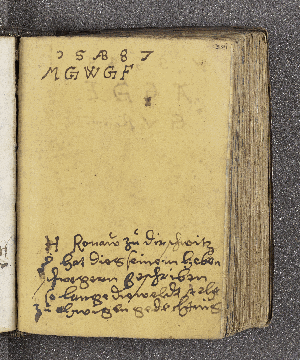 15 AB 87
MGWGF
H Ronaw zu dirschwitz
hat dies seinem lieben
schwegern geschriben
so lange die weldt stelt
zu ewigen gedechtnus